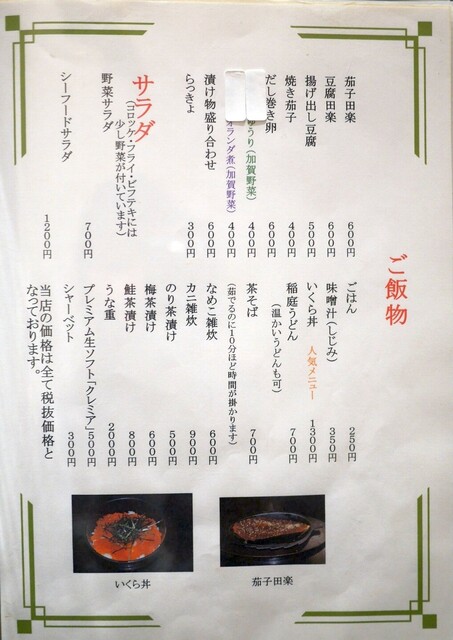 茄子田楽 600円
豆腐田楽 600円
揚げ出し豆腐 500円
焼き茄子 400円
だし巻き卵 600円
うり(加賀野菜) 400円
オランダ煮(加賀野菜) 400円
漬け物盛り合わせ 600円
らっきょ 300円
サラダ
(コロッケ・フライ・ビフテキには
少し野菜が付いています)
野菜サラダ 700円
シーフードサラダ 1200円
ご飯物
ごはん 250円
味噌汁(しじみ) 350円
いくら丼 人気メニュー 1300円
稲庭うどん 700円
(温かいうどんも可)
茶そば 700円
(茹でるのに10分ほど時間が掛かります)
なめこ雑炊 600円
カニ雑炊 900円
のり茶漬け 500円
梅茶漬け 600円
鮭茶漬け 800円
うな重 2000円
プレミアム生ソフト「クレミア」 500円
シャーベット 300円
当店の価格は全て税抜価格と
なっております。
いくら丼
茄子田楽